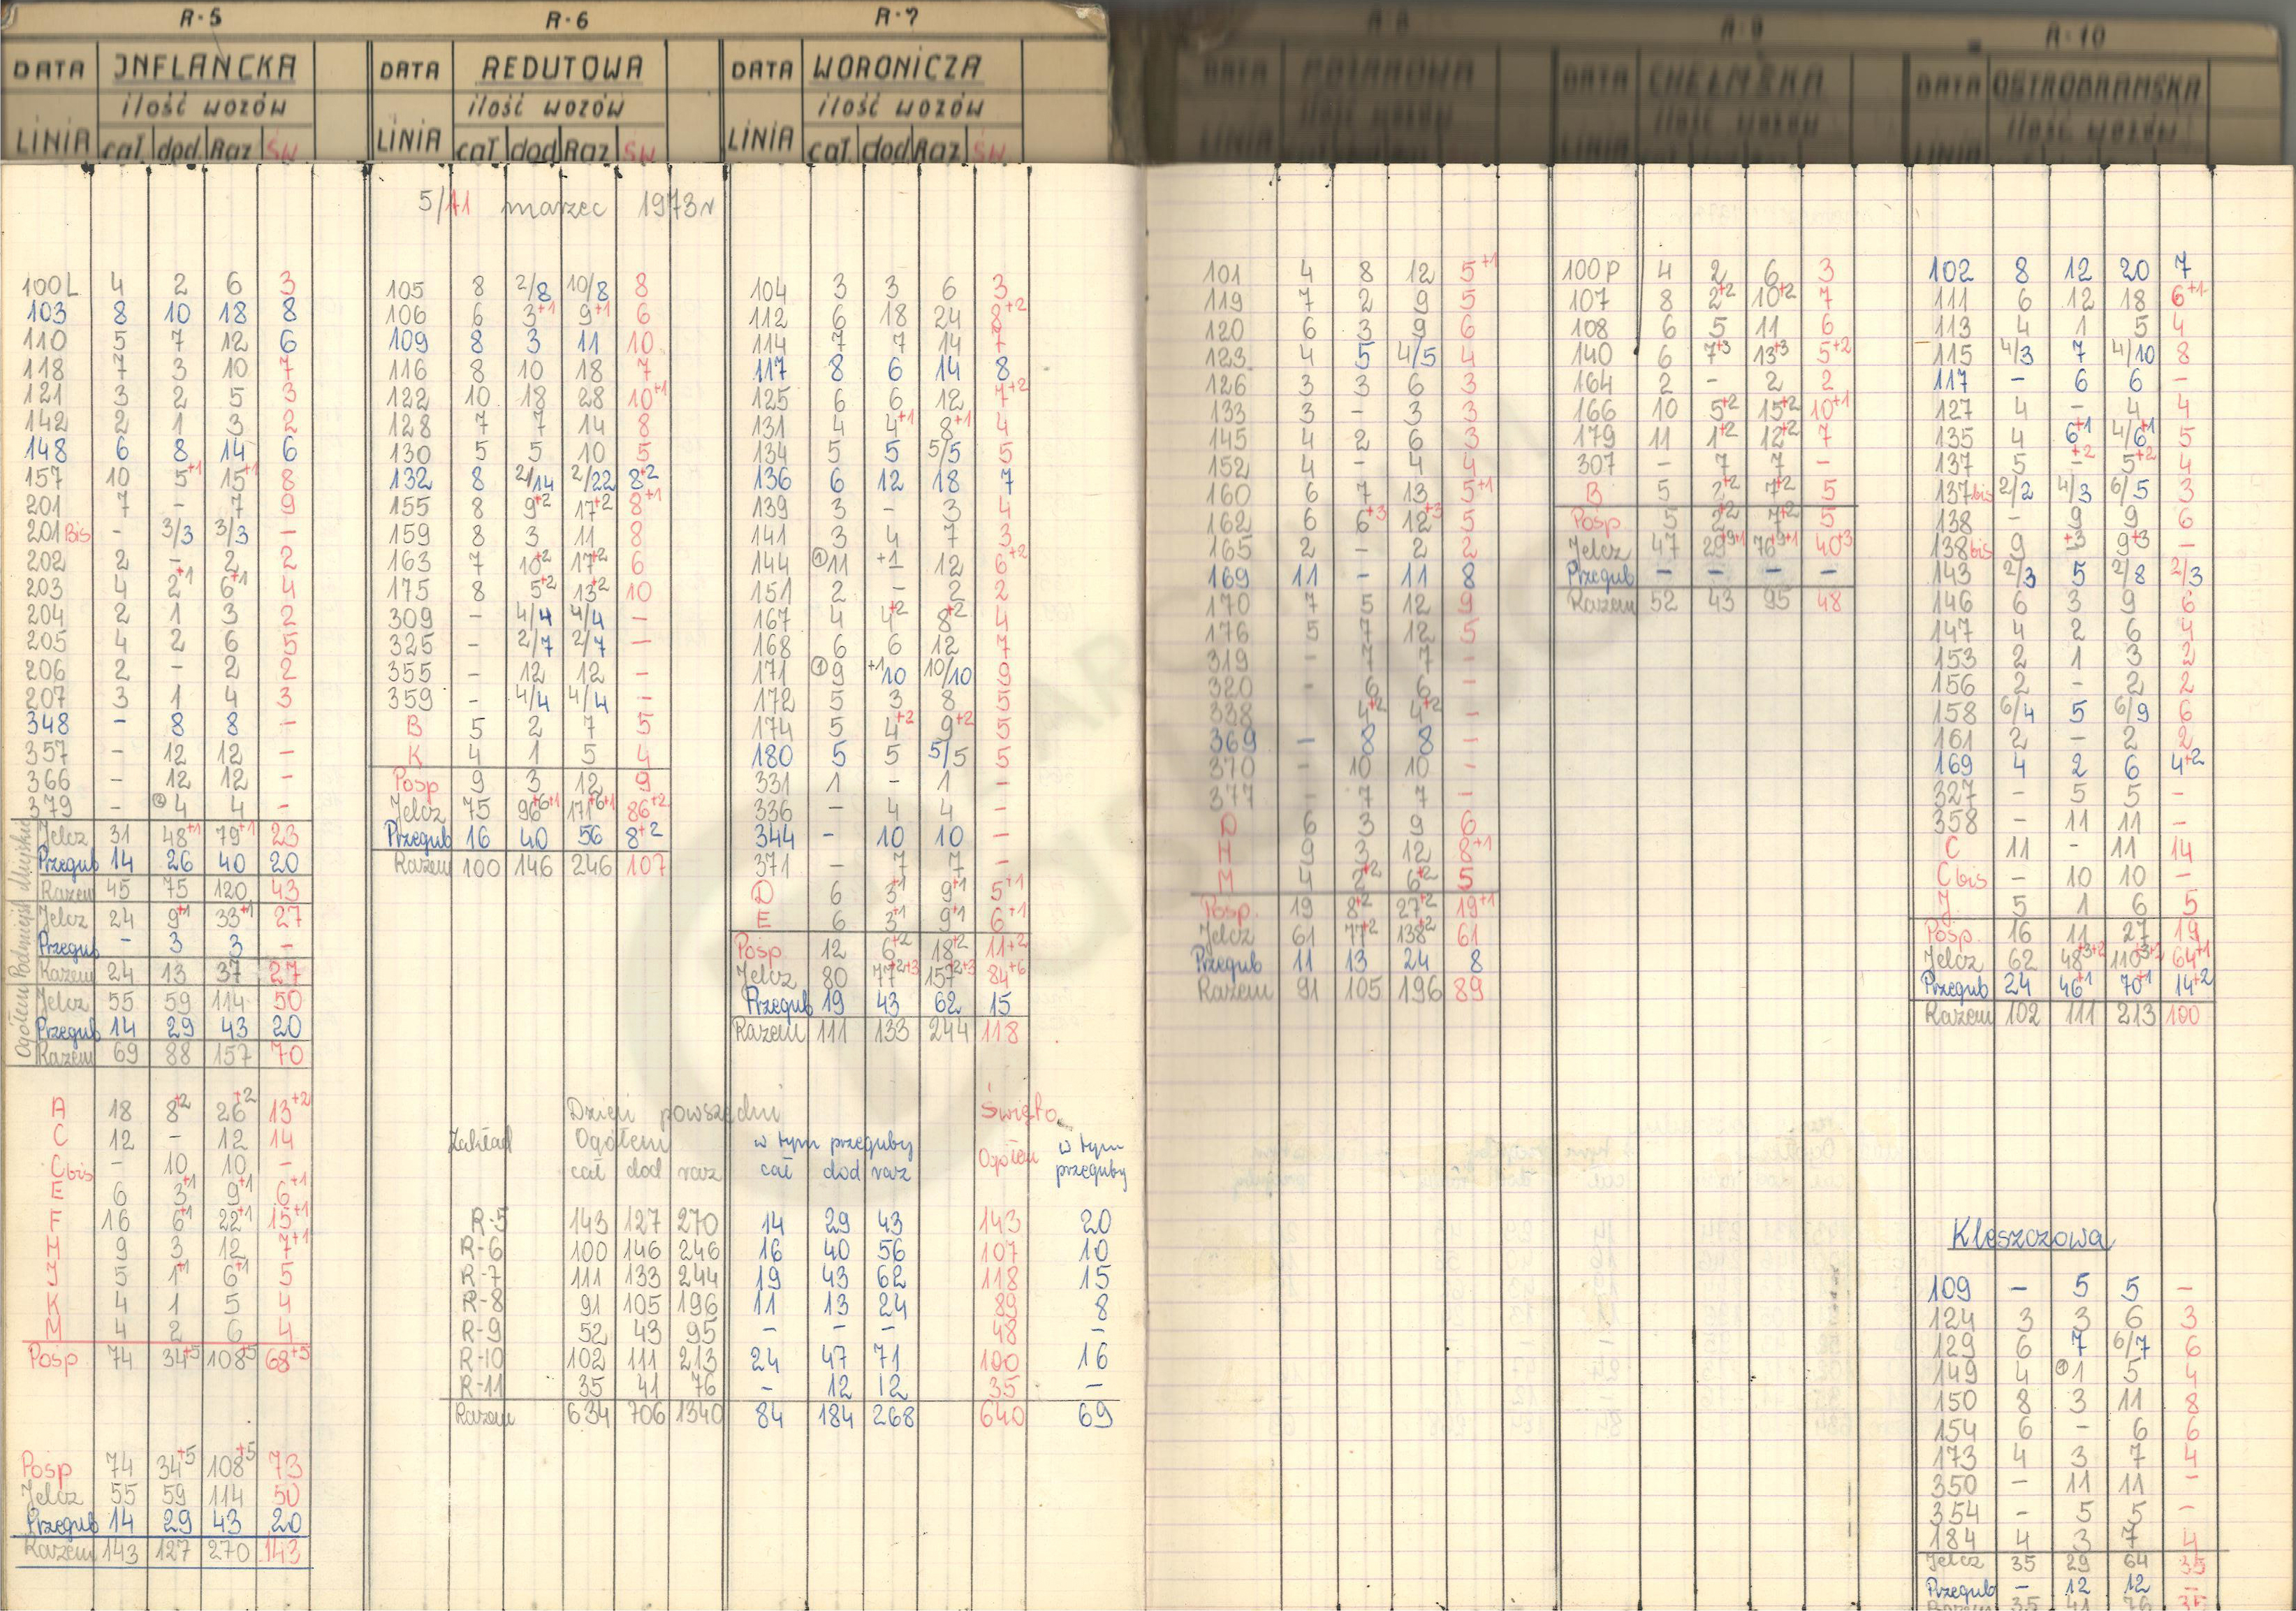 R-5
DATA INFLANCKA
ilość wozów
LINIA cał. dod. Raz św
100L 4 2 6 3
103 8 10 18 8
110 5 7 12 6
118 7 3 10 7
121 3 2 5 3
142 2 1 3 2
148 6 8 14 6
157 10 5+1 15+1 8
201 7 - 7 9
201 Bis - 3/3 3/3 -
202 2 - 2 2
203 4 2+1 6+1 4
204 2 1 3 2
205 4 2 6 5
206 2 - 2 2
207 3 1 4 3
348 - 8 8 -
357 - 12 12 -
366 - 12 12 -
379 - 4 4 -
Miejskie
Jelcz 31 48+1 79+1 23
Przegub 14 26 40 20
Razem 45 75 120 43
Podmiejs
Jelcz 24 9+1 33+1 27
Przegub - 3 3 -
Razem 24 13 37 27
Ogółem
Jelcz 55 59 114 50
Przegub 14 29 43 20
Razem 69 88 157 70
A 18 8+2 26+2 13+2
C 12 - 12 14
C bis - 10 10 -
E 6 3+1 9+1 6+1
F 16 6+1 22+1 15+1
H 9 3 12 7+1
J 5 1+1 6+1 5
K 4 1 5 4
M 4 2 6 4
Posp 74 34+5 108+5 68+5
Posp 74 34+5 108+5 73
Jelcz 55 59 114 50
Przegub 14 29 43 20
Razem 143 127 270 143
R-6
DATA REDUTOWA
ilość wozów
LINIA cał dod Raz św
5/11 marzec 1973 r
105 8 2/8 10/8 8
106 6 3+1 9+1 6
109 8 3 11 10
116 8 10 18 7
122 10 18 28 10+1
128 7 7 14 8
130 5 5 10 5
132 8 2/14 2/22 8+2
155 8 9+2 17+2 8+1
159 8 3 11 8
163 7 10+2 17+2 6
175 8 5+2 13+2 10
309 - 4/4 4/4 -
325 - 2/7 2/7 -
355 - 12 12 -
359 - 4/4 4/4 -
B 5 2 7 5
K 4 1 5 4
Posp 9 3 12 9
Jelcz 75 96+6+1 171+6+1 86+2
Przegub 16 40 56 8+2
Razem 100 146 246 107
R-7
DATA WORONICZA
ilość wozów
LINIA cał. dod Raz. św
104 3 3 6 3
112 6 18 24 8+2
114 7 7 14 7
117 8 6 14 8
125 6 6 12 7+2
131 4 4+1 8+1 4
134 5 5 5/5 5
136 6 12 18 7
139 3 - 3 4
141 3 4 7 3
144 ①11 +1 12 6+2
151 2 - 2 2
167 4 4+2 8+2 4
168 6 6 12 7
171 ①9 +1 10 10/10 9
172 5 3 8 5
174 5 4+2 9+2 5
180 5 5 5/5 5
331 1 - 1 -
336 - 4 4 -
344 - 10 10 -
371 - 7 7 -
D 6 3+1 9+1 5+1
E 6 3+1 9+1 6+1
Posp 12 6+2 18+2 11+2
Jelcz 80 77+2+3 157+2+3 84+6
Przegub 19 43 62 15
Razem 111 133 244 118
Dzień powszedni Święto
Zakład Ogółem w tym przeguby Ogółem w tym przeguby
cał dod raz cał dod raz
R-5 143 127 270 14 29 43 143 20
R-6 100 146 246 16 40 56 107 10
R-7 111 133 244 19 43 62 118 15
R-8 91 105 196 11 13 24 89 8
R-9 52 43 95 - - - 48 -
R-10 102 111 213 24 47 71 100 16
R-11 35 41 76 - 12 12 35 -
Razem 634 706 1340 84 184 268 640 69
R-8
DATA
ilość wozów
LINIA
101 4 8 12 5+1
119 7 2 9 5
120 6 3 9 6
123 4 5 4/5 4
126 3 3 6 3
133 3 - 3 3
145 4 2 6 3
152 4 - 4 4
160 6 7 13 5+1
162 6 6+3 12+3 5
165 2 - 2 2
169 11 - 11 8
170 7 5 12 9
176 5 7 12 5
319 - 7 7 -
320 - 6 6 -
338 - 4+2 4+2 -
369 - 8 8 -
370 - 10 10 -
377 - 7 7 -
D 6 3 9 6
H 9 3 12 8+1
M 4 2+2 6+2 5
Posp. 19 8+2 27+2 19+1
Jelcz 61 77+2 138+2 61
Przegub 11 13 24 8
Razem 91 105 196 89
R-9
DATA CHEŁMSKA
ilość wozów
LINIA
100P 4 2 6 3
107 8 2+2 10+2 7
108 6 5 11 6
140 6 7+3 13+3 5+2
164 2 - 2 2
166 10 5+2 15+2 10+1
179 11 1+2 12+2 7
307 - 7 7 -
B 5 2+2 7+2 5
Posp 5 2+2 7+2 5
Jelcz 47 29+9+1 76+9+1 40+3
Przegub - - - -
Razem 52 43 95 48
R-10
DATA OSTROBRAMSKA
ilość wozów
LINIA
102 8 12 20 7
111 6 12 18 6+1
113 4 1 5 4
115 4/3 7 4/10 8
117 - 6 6 -
127 4 - 4 4
135 4 6+1 4/6+1 5
137 5 -+2 5+2 4
137bis 2/2 4/3 6/5 3
138 - 9 9 6
138bis 9 +3 9+3 -
143 2/3 5 2/8 2/3
146 6 3 9 6
147 4 2 6 4
153 2 1 3 2
156 2 - 2 2
158 6/4 5 6/9 6
161 2 - 2 2
169 4 2 6 4+2
327 - 5 5 -
358 - 11 11 -
C 11 - 11 14
C bis - 10 10 -
J 5 1 6 5
Posp. 16 11 27 19
Jelcz 62 48+3+2 110+3+2 64+1
Przegub 24 46+1 70+1 14+2
Razem 102 111 213 100
Kleszczowa
109 - 5 5 -
124 3 3 6 3
129 6 7 6/7 6
149 4 ①1 5 4
150 8 3 11 8
154 6 - 6 6
173 4 3 7 4
350 - 11 11 -
354 - 5 5 -
184 4 3 7 4
Jelcz 35 29 64 35
Przegub - 12 12 -
Razem 35 41 76 35